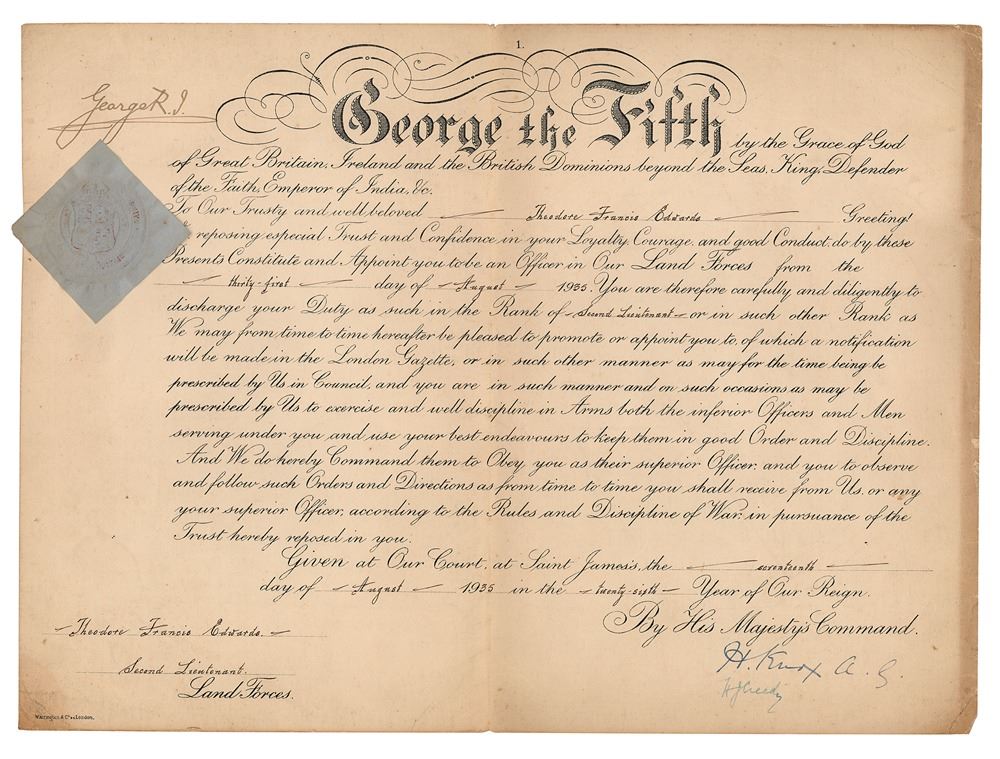 1.
George R.I.
George the Fifth by the Grace of God
of Great Britain, Ireland and the British Dominions beyond the Seas, King, Defender
of the Faith, Emperor of India, &c.
To Our Trusty and well beloved Theodore Francis Edwards Greeting!
reposing especial Trust and Confidence in your Loyalty, Courage, and good Conduct, do by these
Presents Constitute and Appoint you to be an Officer in Our Land Forces from the
thirty-first day of August 1935. You are therefore carefully and diligently to
discharge your Duty as such in the Rank of Second Lieutenant or in such other Rank as
We may from time to time hereafter be pleased to promote or appoint you to, of which a notification
will be made in the London Gazette, or in such other manner as may for the time being be
prescribed by Us in Council, and you are in such manner and on such occasions as may be
prescribed by Us to exercise and well discipline in Arms both the inferior Officers and Men
serving under you and use your best endeavours to keep them in good Order and Discipline.
And We do hereby Command them to Obey you as their superior Officer, and you to observe
and follow such Orders and Directions as from time to time you shall receive from Us, or any
your superior Officer, according to the Rules and Discipline of War, in pursuance of the
Trust hereby reposed in you.
Given at Our Court, at Saint James's, the seventeenth
day of August 1935 in the twenty-sixth Year of Our Reign.
By His Majesty's Command.
Theodore Francis Edwards.
H. Knox A. G.
H J Creedy
Second Lieutenant.
Land Forces.
Warrington & Co London.